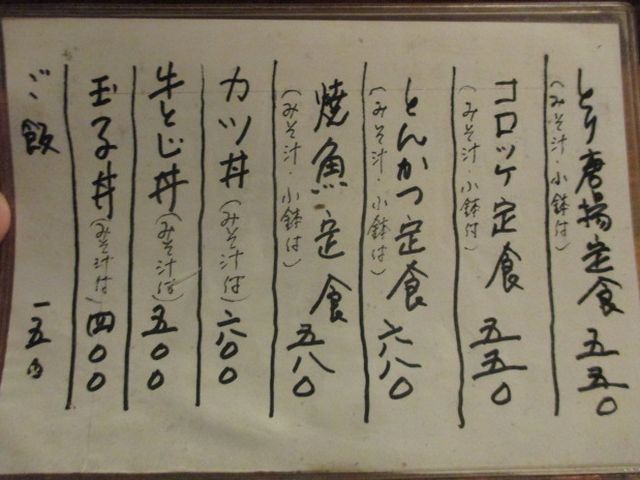 とり唐揚定食 五五〇
(みそ汁・小鉢付)
コロッケ定食 五五〇
(みそ汁・小鉢付)
とんかつ定食 六八〇
(みそ汁・小鉢付)
焼魚定食 五八〇
(みそ汁・小鉢付)
カツ丼(みそ汁付)六〇〇
牛とじ丼(みそ汁付)五〇〇
玉子丼(みそ汁付)四〇〇
ご飯 一五〇